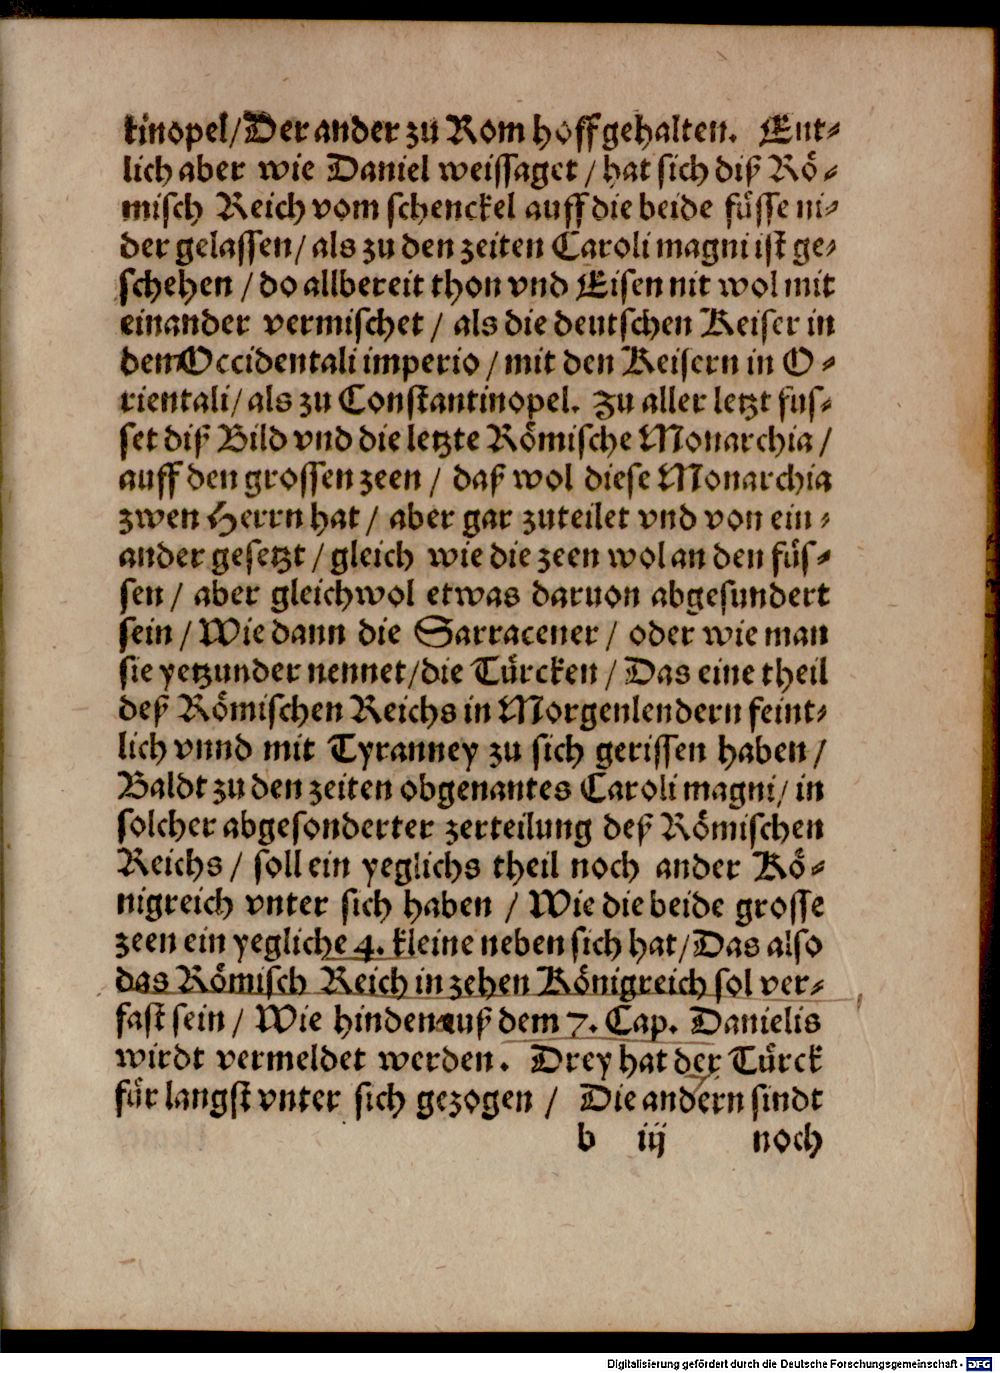 tinopel/Der ander zu Rom hoff gehalten. Ent⸗
lich aber wie Daniel weissaget / hat sich diß Rö⸗
misch Reich vom schenckel auff die beide füsse ni⸗
der gelassen/ als zu den zeiten Caroli magni ist ge⸗
schehen / do allbereit thon vnd Eisen nit wol mit
einander vermischet / als die deutschen Keiser in
dem Occidentali imperio / mit den Keisern in O⸗
rientali/ als zu Constantinopel. Zu aller letzt fus⸗
set diß Bild vnd die letzte Römische Monarchia /
auff den grossen zeen / daß wol diese Monarchia
zwen Herrn hat / aber gar zuteilet vnd von ein⸗
ander gesetzt / gleich wie die zeen wol an den füs⸗
sen / aber gleichwol etwas daruon abgesundert
sein / Wie dann die Sarracener / oder wie man
sie yetzunder nennet/die Türcken / Das eine theil
deß Römischen Reichs in Morgenlendern feint⸗
lich vnnd mit Tyranney zu sich gerissen haben /
Baldt zu den zeiten obgenantes Caroli magni/ in
solcher abgesonderter zerteilung deß Römischen
Reichs / soll ein yeglichs theil noch ander Kö⸗
nigreich vnter sich haben / Wie die beide grosse
zeen ein yegliche 4. kleine neben sich hat/Das also
das Römisch Reich in zehen Königreich sol ver⸗
fast sein / Wie hinden auß dem 7. Cap. Danielis
wirdt vermeldet werden. Drey hat der Türck
für langst vnter sich gezogen / Die andern sindt
b iij noch
Digitalisierung gefördert durch die Deutsche Forschungsgemeinschaft - DFG